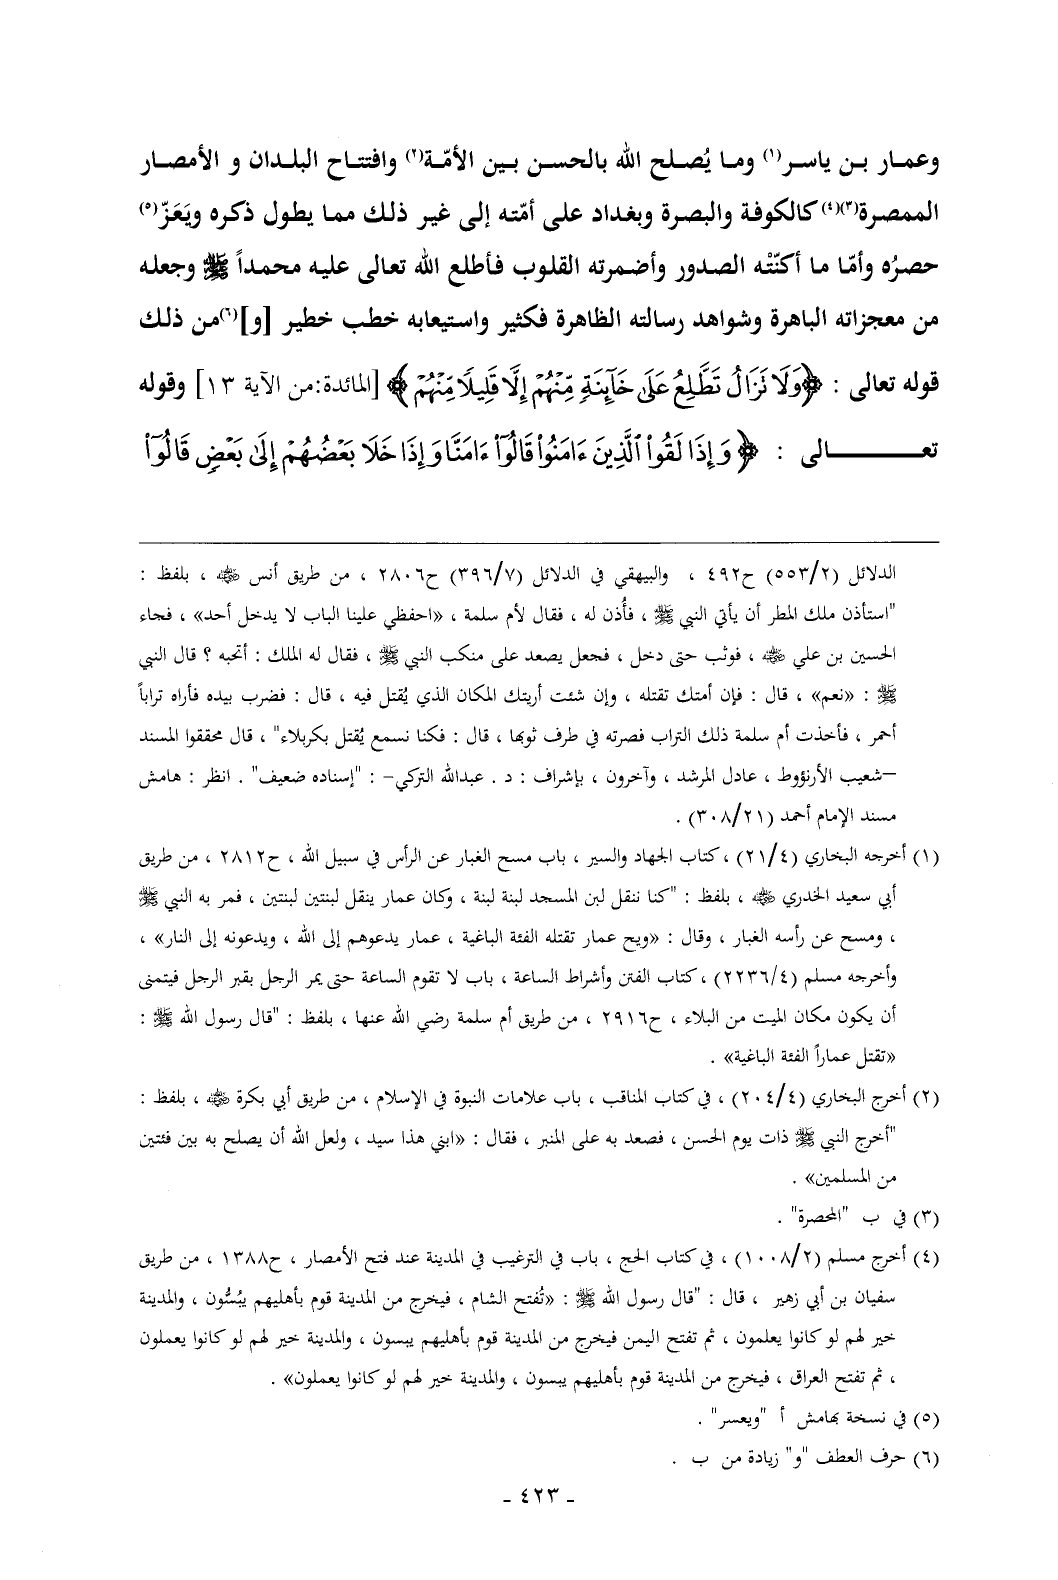 وعمار بن ياسر(١) وما يُصلح الله بالحسن بين الأمّة(٢) وافتتاح البلدان و الأمصار
الممصرة(٣)(٤) كالكوفة والبصرة وبغداد على أمّته إلى غير ذلك مما يطول ذكره ويَعَزّ(٥)
حصرُه وأمّا ما أكنّتْه الصدور وأضمرته القلوب فأطلع الله تعالى عليه محمداً ﷺ وجعله
من معجزاته الباهرة وشواهد رسالته الظاهرة فكثير واستيعابه خطب خطير [و](٦)من ذلك
قوله تعالى : ﴿وَلَا تَزَالُ تَطَّلِعُ عَلَىٰ خَآئِنَةٍ مِّنْهُمْ إِلَّا قَلِيلًا مِّنْهُمْ﴾ [المائدة:من الآية ١٣] وقوله
تعــــــــــالى : ﴿وَإِذَا لَقُوا۟ ٱلَّذِينَ ءَامَنُوا۟ قَالُوٓا۟ ءَامَنَّا وَإِذَا خَلَا بَعْضُهُمْ إِلَىٰ بَعْضٍ قَالُوٓا۟
الدلائل (٥٥٣/٢) ح٤٩٢ ، والبيهقي في الدلائل (٣٩٦/٧) ح٢٨٠٦ ، من طريق أنس ﷺ ، بلفظ :
"استأذن ملك المطر أن يأتي النبي ﷺ ، فأُذن له ، فقال لأم سلمة ، «احفظي علينا الباب لا يدخل أحد» ، فجاء
الحسين بن علي ﷺ ، فوثب حتى دخل ، فجعل يصعد على منكب النبي ﷺ ، فقال له الملك : أتحبه ؟ قال النبي
ﷺ : «نعم» ، قال : فإن أمتك تقتله ، وإن شئت أريتك المكان الذي يُقتل فيه ، قال : فضرب بيده فأراه تراباً
أحمر ، فأخذت أم سلمة ذلك التراب فصرته في طرف ثوبها ، قال : فكنا نسمع يُقتل بكربلاء" ، قال محققوا المسند
–شعيب الأرنؤوط ، عادل المرشد ، وآخرون ، بإشراف : د . عبدالله التركي– : "إسناده ضعيف" . انظر : هامش
مسند الإمام أحمد (٣٠٨/٢١) .
(١) أخرجه البخاري (٢١/٤) ، كتاب الجهاد والسير ، باب مسح الغبار عن الرأس في سبيل الله ، ح٢٨١٢ ، من طريق
أبي سعيد الخدري ﷺ ، بلفظ : "كنا ننقل لبن المسجد لبنة لبنة ، وكان عمار ينقل لبنتين لبنتين ، فمر به النبي ﷺ
، ومسح عن رأسه الغبار ، وقال : «ويح عمار تقتله الفئة الباغية ، عمار يدعوهم إلى الله ، ويدعونه إلى النار» ،
وأخرجه مسلم (٢٢٣٦/٤) ، كتاب الفتن وأشراط الساعة ، باب لا تقوم الساعة حتى يمر الرجل بقبر الرجل فيتمنى
أن يكون مكان الميت من البلاء ، ح٢٩١٦ ، من طريق أم سلمة رضي الله عنها ، بلفظ : "قال رسول الله ﷺ :
«تقتل عماراً الفئة الباغية» .
(٢) أخرج البخاري (٢٠٤/٤) ، في كتاب المناقب ، باب علامات النبوة في الإسلام ، من طريق أبي بكرة ﷺ ، بلفظ :
"أخرج النبي ﷺ ذات يوم الحسن ، فصعد به على المنبر ، فقال : «ابني هذا سيد ، ولعل الله أن يصلح به بين فئتين
من المسلمين» .
(٣) في ب "المحصرة" .
(٤) أخرج مسلم (١٠٠٨/٢) ، في كتاب الحج ، باب في الترغيب في المدينة عند فتح الأمصار ، ح١٣٨٨ ، من طريق
سفيان بن أبي زهير ، قال : "قال رسول الله ﷺ : «تُفتح الشام ، فيخرج من المدينة قوم بأهليهم يبُسُّون ، والمدينة
خير لهم لو كانوا يعلمون ، ثم تفتح اليمن فيخرج من المدينة قوم بأهليهم يبسون ، والمدينة خير لهم لو كانوا يعملون
، ثم تفتح العراق ، فيخرج من المدينة قوم بأهليهم يبسون ، والمدينة خير لهم لو كانوا يعملون» .
(٥) في نسخة بهامش أ "ويعسر" .
(٦) حرف العطف "و" زيادة من ب .
- ٤٢٣ -